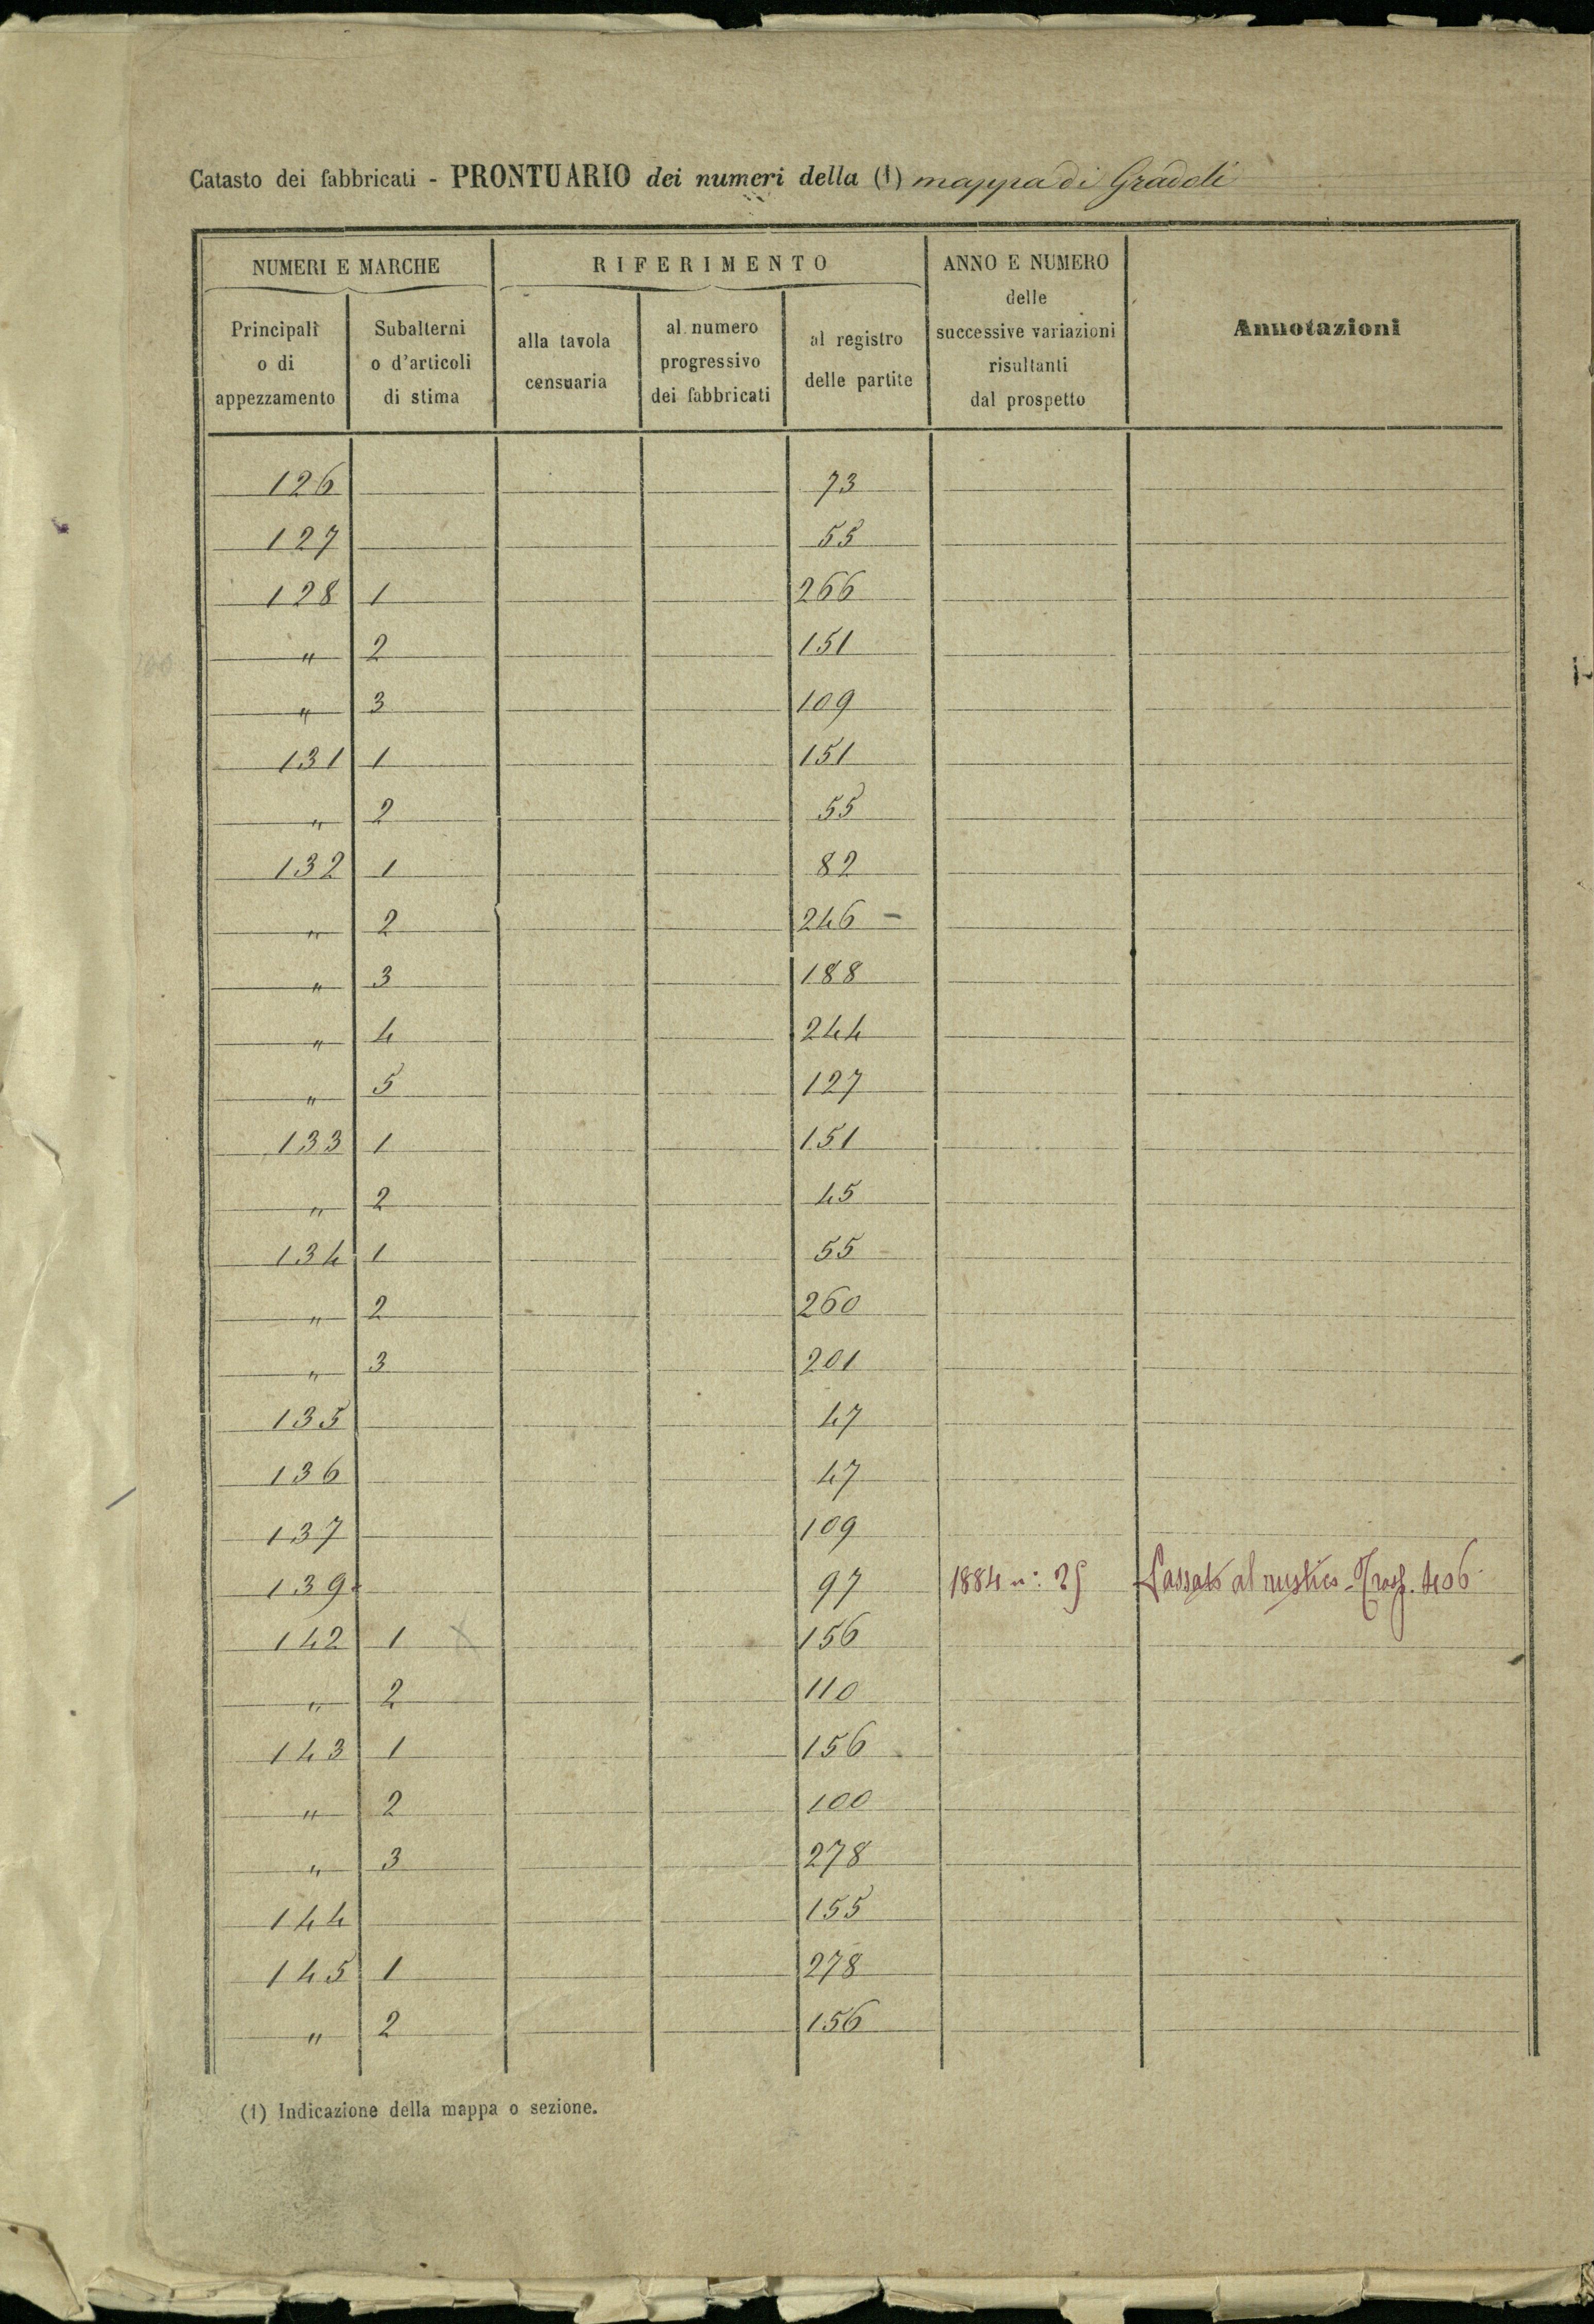 Catasto dei fabbricati - PRONTUARIO dei numeri della (1) mappa di Gradoli
NUMERI E MARCHE
RIFERIMENTO
ANNO E NUMERO
delle
successive variazioni
risultanti
dal prospetto
Annotazioni
Principali
o di
appezzamento
Subalterni
o d'articoli
di stima
alla tavola
censuaria
al numero
progressivo
dei fabbricati
al registro
delle partite
126 73
127 55
128 1 266
" 2 151
" 3 109
131 1 151
" 2 55
132 1 82
" 2 246 -
" 3 188
" 4 244
" 5 127
133 1 151
" 2 45
134 1 55
" 2 260
" 3 201
135 47
136 47
137 109
139 97 1884 n: 25 Passato al rustico - Trasf. 406
142 1 156
" 2 110
143 1 156
" 2 100
" 3 278
144 155
145 1 278
" 2 156
(1) Indicazione della mappa o sezione.